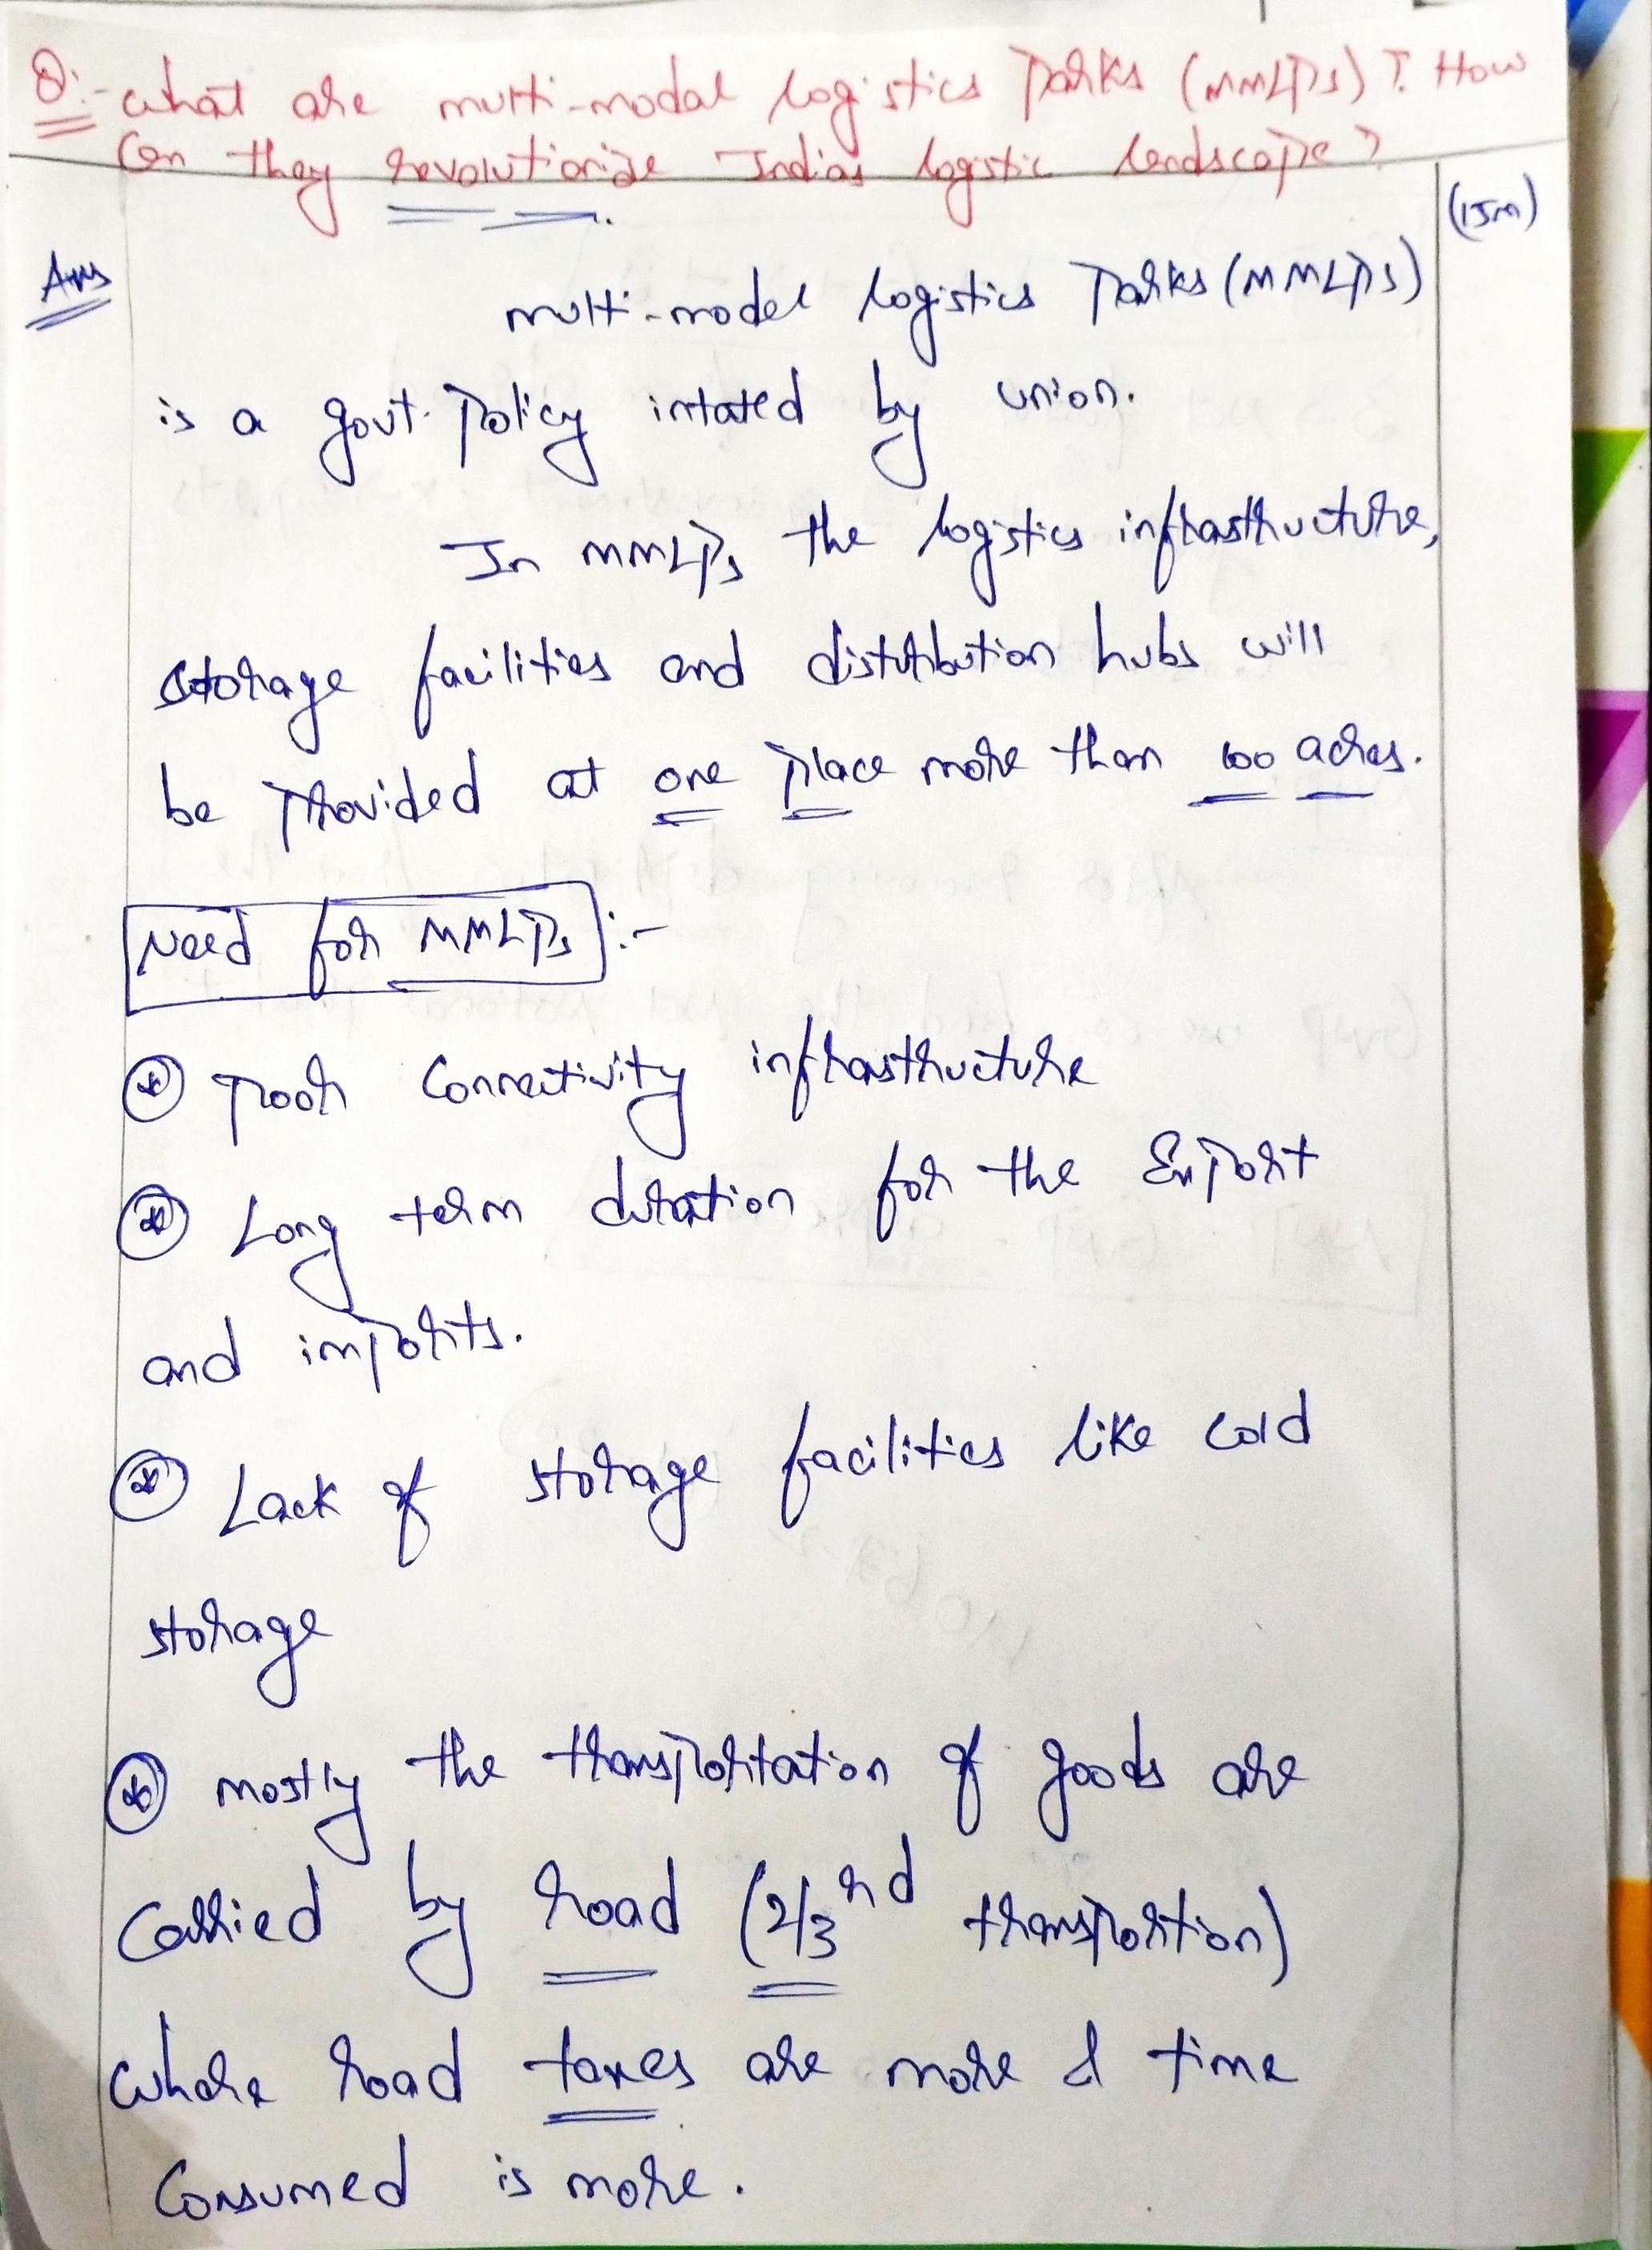 Q:- What are multi-modal logistics Parks (MMLPs)? How
Can they revolutionize India's logistic landscape?
(15m)
Ans
multi-model logistics Parks (MMLPs)
is a govt. Policy intated by union.
In MMLPs the logistics infrastructure,
storage facilities and distribution hubs will
be Provided at one Place more than 100 acres.
Need for MMLPs :-
* Poor Connectivity infrastructure
* Long term duration for the Export
and imports.
* Lack of storage facilities like cold
storage
* mostly the transportation of goods are
carried by road (2/3rd transportion)
where road taxes are more & time
Consumed is more.